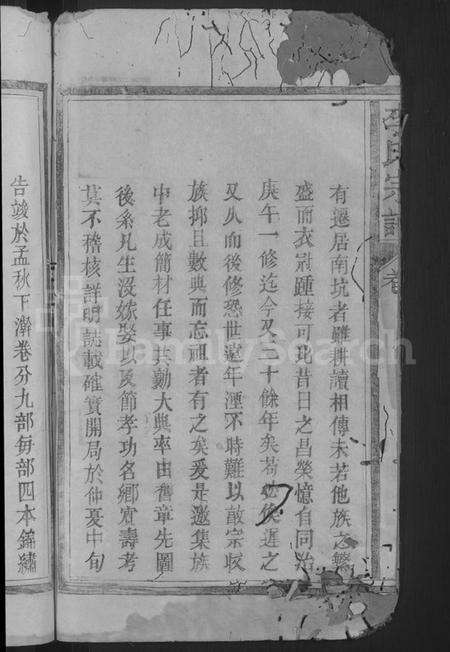 氏宗譜 卷
有遷居南坑者雖耕讀相傳未若他族之繁
盛而衣冠踵接可比昔日之昌熒憶自同治
庚午一修迄今又三十餘年矣苟必俟遲之
又久而後修恐世遠年湮不時難以敬宗收
族抑且數典而忘祖者有之矣爰是邀集族
中老成簡材任事共勷大典率由舊章先圖
後系凡生沒嫁娶以及節孝功名鄉賓壽考
莫不稽核詳明誌載確實開局於仲夏中旬
告竣於孟秋下澣卷分九部每部四本錦繡
FamilySearch